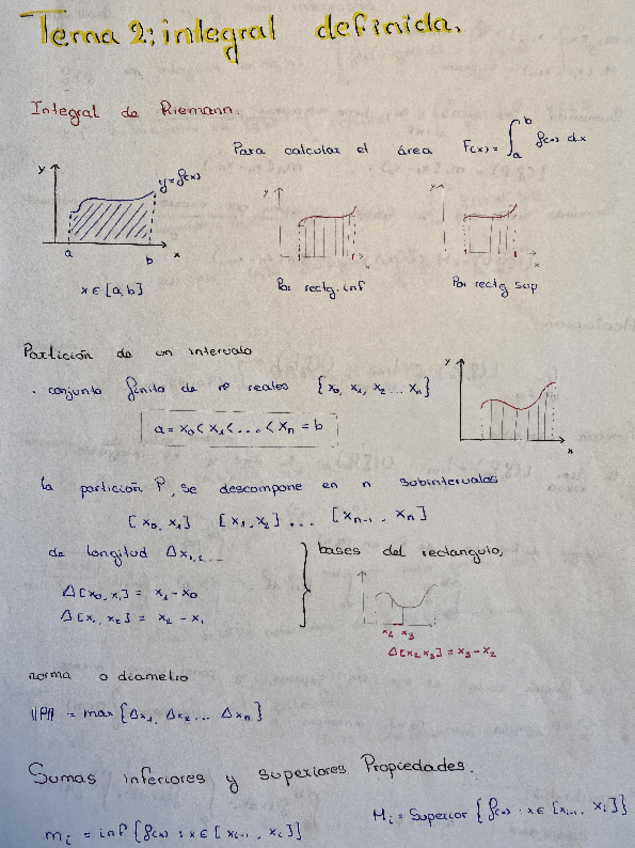 Tema 2: integral definida.
Integral de Riemann.
Para calcular el área F(x) = ∫_a^b f(x) dx
y
y = f(x)
a b x
x ∈ [a, b]
y
x
Por rectg. inf
y
x
Por rectg sup
Partición de un intervalo
. conjunto finito de nº reales {x₀, x₁, x₂ ... xₙ}
a = x₀ < x₁ < ... < xₙ = b
y
x
la partición P, se descompone en n subintervalos
[x₀, x₁] [x₁, x₂] ... [xₙ₋₁, xₙ]
de longitud Δx₁,₂...
bases del rectangulo,
Δ[x₀, x₁] = x₁ - x₀
Δ[x₁, x₂] = x₂ - x₁
x₂ x₃
Δ[x₂ x₃] = x₃ - x₂
norma o diametro
||P|| = max {Δx₁, Δx₂ ... Δxₙ}
Sumas inferiores y superiores. Propiedades.
mᵢ = inf {f(x) : x ∈ [xᵢ₋₁, xᵢ]}
Mᵢ = Superior {f(x) : x ∈ [xᵢ₋₁, xᵢ]}